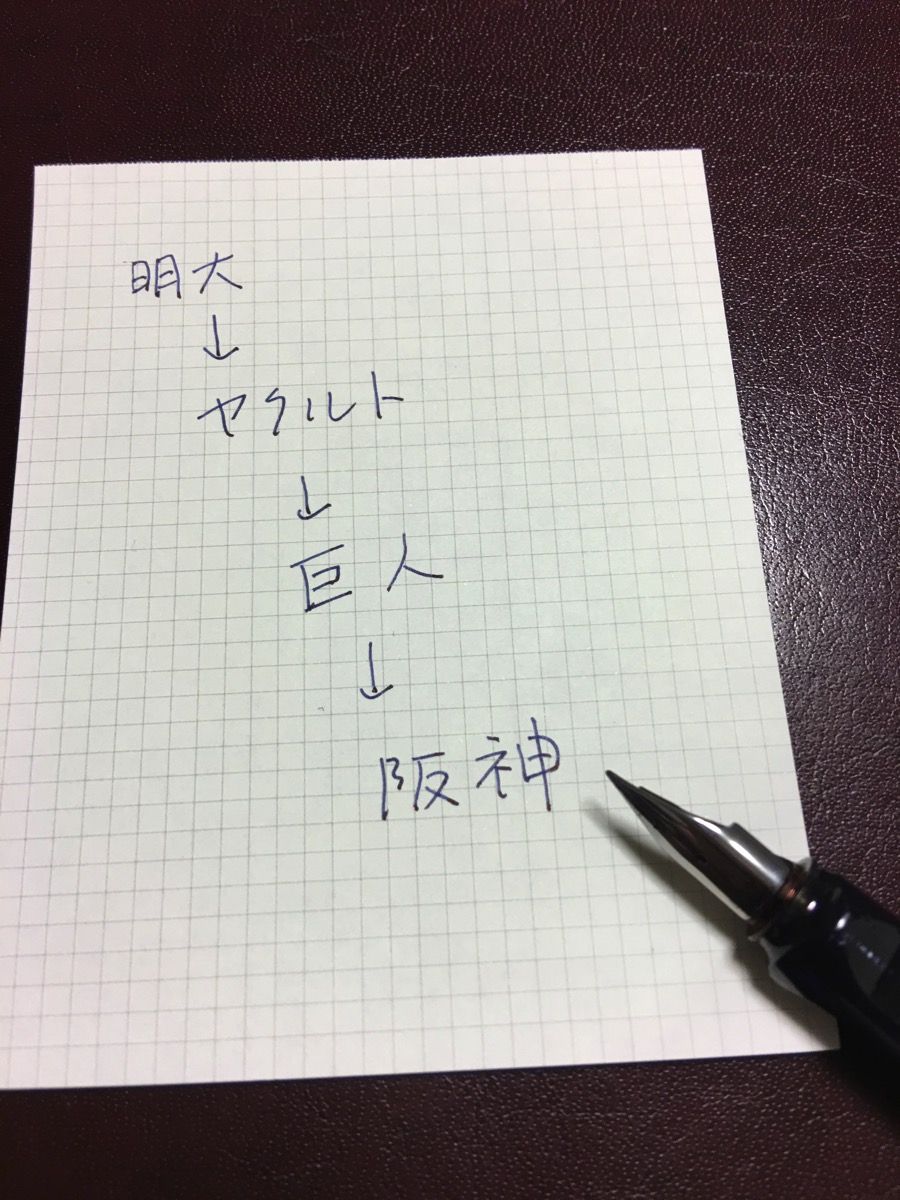 明大
↓
ヤクルト
↓
巨人
↓
阪神